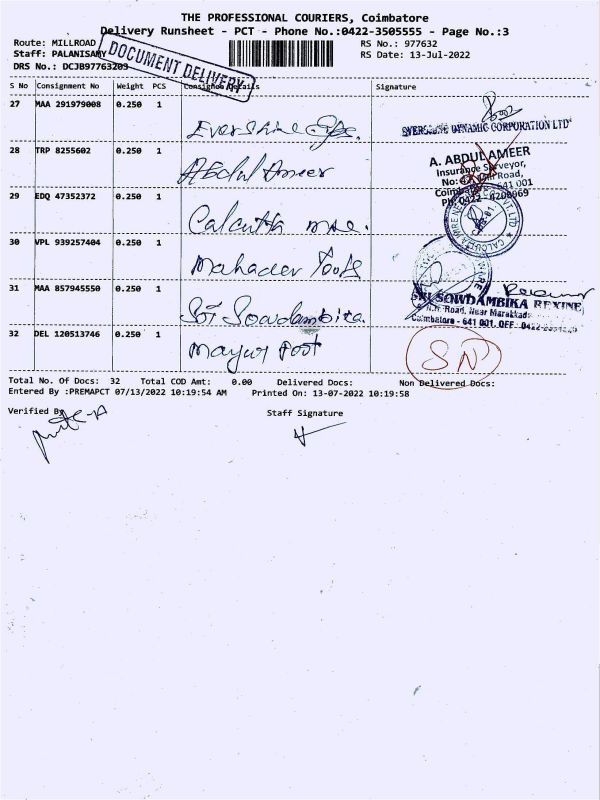 THE PROFESSIONAL COURIERS, Coimbatore
Delivery Runsheet - PCT - Phone No.:0422-3505555 - Page No.:3
Route: MILLROAD
RS No.: 977632
Staff: PALANISAMY
RS Date: 13-Jul-2022
DRS No.: DCJB97763203
DOCUMENT DELIVERY
S No Consignment No Weight PCS Consignee Details Signature
27 MAA 291979008 0.250 1
Evershine
DYNAMIC CORPORATION LTD
28 TRP 8255602 0.250 1
Abdul Ameer
A. ABDUL AMEER
Insurance Surveyor,
Road,
641 001
29 EDQ 47352372 0.250 1
Calcutta
30 VPL 939257404 0.250 1
Mahadev Tools
31 MAA 857945550 0.250 1
Sri Sowdambika.
SRI SOWDAMBIKA REXINE
Road, Near Marakkad
Coimbatore - 641 001. OFF
32 DEL 120513746 0.250 1
Mayur Foot
SN
Total No. Of Docs: 32 Total COD Amt: 0.00 Delivered Docs: Non Delivered Docs:
Entered By :PREMAPCT 07/13/2022 10:19:54 AM Printed On: 13-07-2022 10:19:58
Verified By
Staff Signature